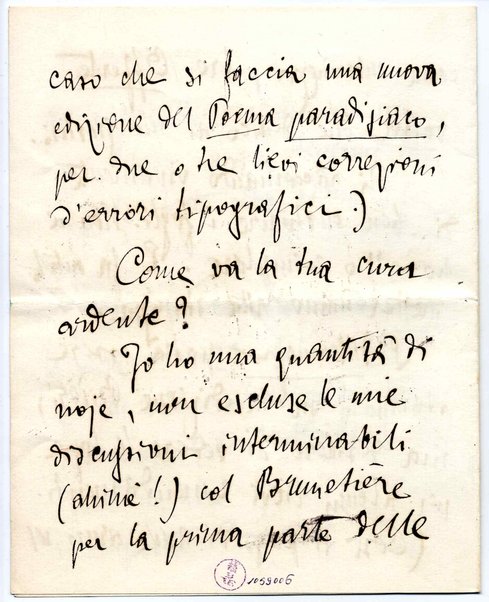 caso che si faccia una nuova
edizione del Poema paradisiaco,
per due o tre lievi correzioni
d'errori tipografici.)
Come va la tua cura
ardente?
Io ho una quantità di
noje, non escluse le mie
discussioni interminabili
(ahimè!) col Brunetière
per la prima parte delle
1059006